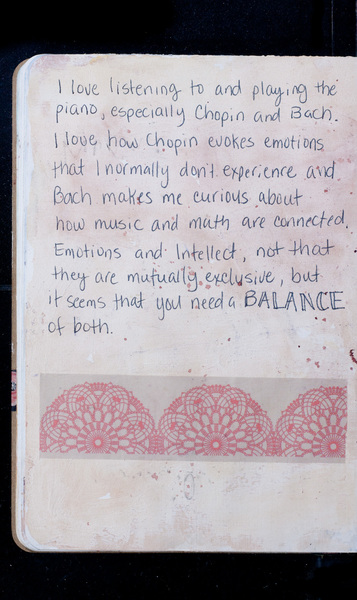 I love listening to and playing the
piano, especially Chopin and Bach.
I love how Chopin evokes emotions
that I normally don't experience and
Bach makes me curious about
how music and math are connected.
Emotions and Intellect, not that
they are mutually exclusive, but
it seems that you need a BALANCE
of both.